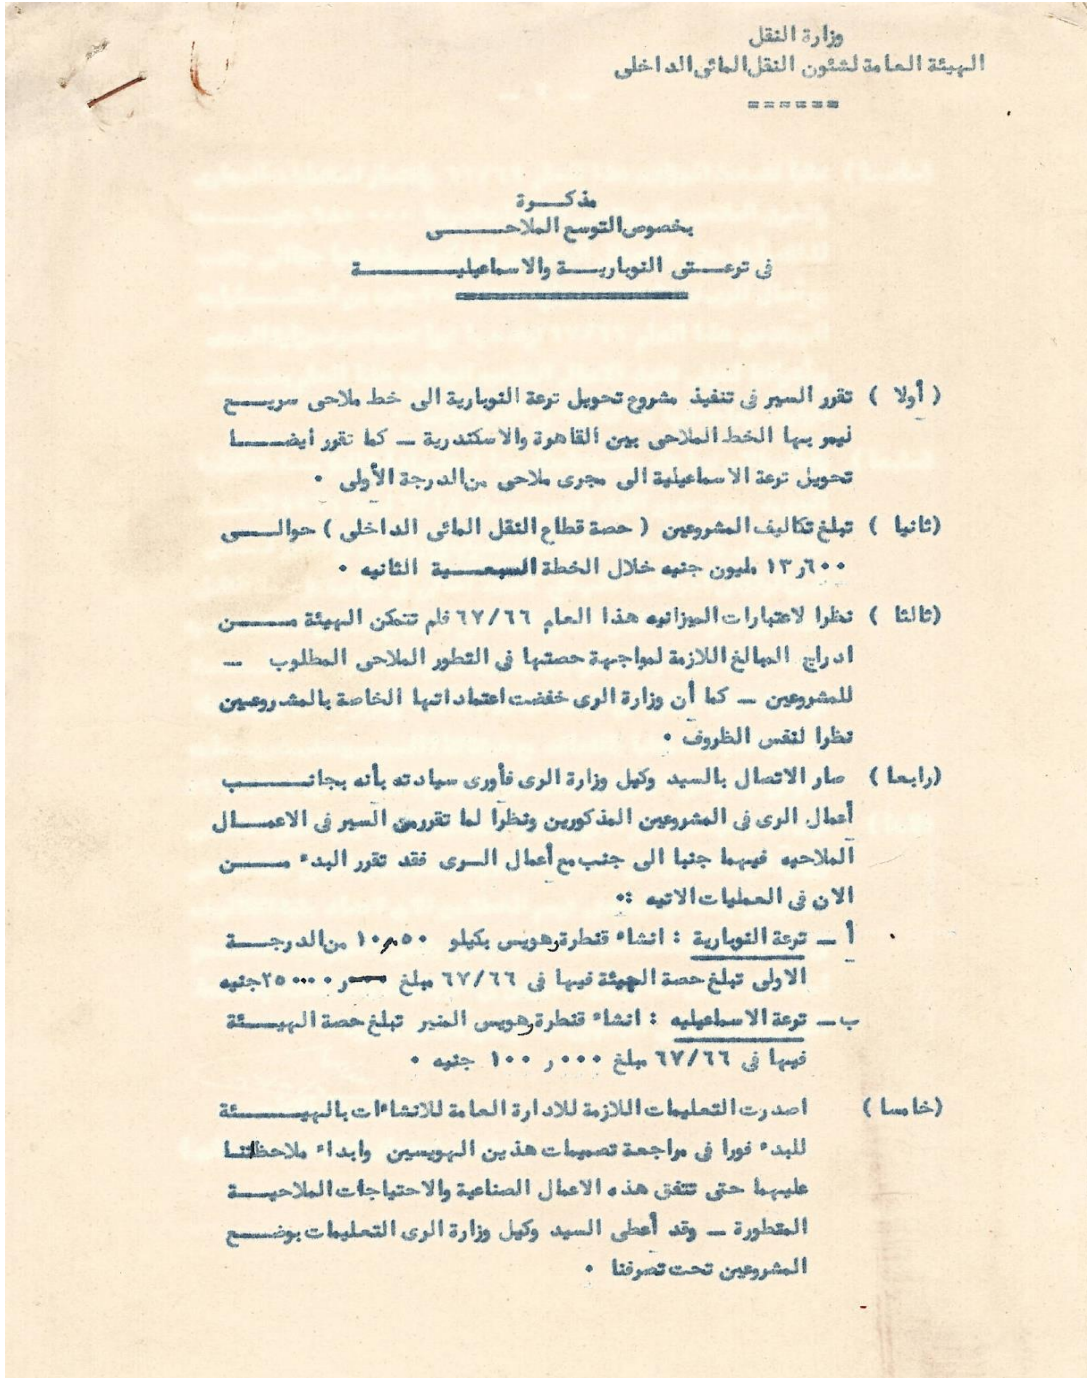 وزارة النقل
الهيئة العامة لشئون النقل المائى الداخلى
======
مذكرة
بخصوص التوسع الملاحى
فى ترعتى النوبارية والاسماعيلية
( أولا ) تقرر السير فى تنفيذ مشروع تحويل ترعة النوبارية الى خط ملاحى سريع
ليمر بها الخط الملاحى بين القاهرة والاسكندرية ــ كما تقرر ايضا
تحويل ترعة الاسماعيلية الى مجرى ملاحى من الدرجة الأولى ٠
(ثانيا ) تبلغ تكاليف المشروعين ( حصة قطاع النقل المائى الداخلى ) حوالى
٦٠٠ر١٣ مليون جنيه خلال الخطة السبعية الثانيه ٠
(ثالثا ) نظرا لاعتبارات الميزانيه هذا العام ٦٧/٦٦ فلم تتمكن الهيئة من
ادراج المبالغ اللازمة لمواجهة حصتها فى التطور الملاحى المطلوب ــ
للمشروعين ــ كما أن وزارة الرى خفضت اعتماداتها الخاصة بالمشروعين
نظرا لنفس الظروف ٠
(رابعا ) صار الاتصال بالسيد وكيل وزارة الرى فأورى سيادته بأنه بجانب
أعمال الرى فى المشروعين المذكورين ونظرا لما تقرر من السير فى الاعمال
الملاحيه فيهما جنبا الى جنب مع أعمال الرى فقد تقرر البدء من
الان فى العمليات الاتيه :٠
أ ــ ترعة النوبارية : انشاء قنطرة وهويس بكيلو ٥٠ر١٠ من الدرجة
الاولى تبلغ حصة الهيئة فيها فى ٦٧/٦٦ مبلغ ٢٥٠٠٠٠ جنيه
ب ــ ترعة الاسماعيليه : انشاء قنطرة وهويس المنير تبلغ حصة الهيئة
فيها فى ٦٧/٦٦ مبلغ ٠٠٠ر١٠٠ جنيه ٠
(خامسا ) اصدرت التعليمات اللازمة للادارة العامة للانشاءات بالهيئة
للبدء فورا فى مراجعة تصميمات هذين الهويسين وابداء ملاحظاتنا
عليهما حتى تتفق هذه الاعمال الصناعية والاحتياجات الملاحية
المتطورة ــ وقد أعطى السيد وكيل وزارة الرى التعليمات بوضع
المشروعين تحت تصرفنا ٠